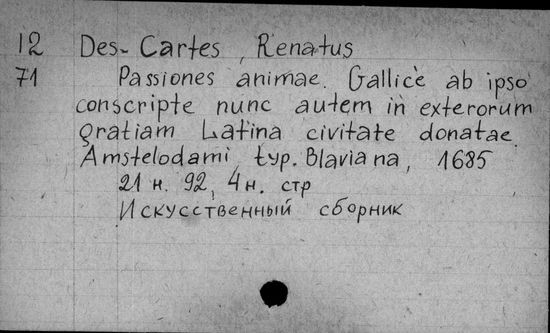 12 Des-Cartes, Renatus
71 Passiones animae. Gallicè ab ipso
conscripte nunc autem in exterorum
gratiam Latina civitate donatae.
Amstelodami, typ. Blaviana, 1685
21 н. 92, 4 н. стр
Искусственный сборник